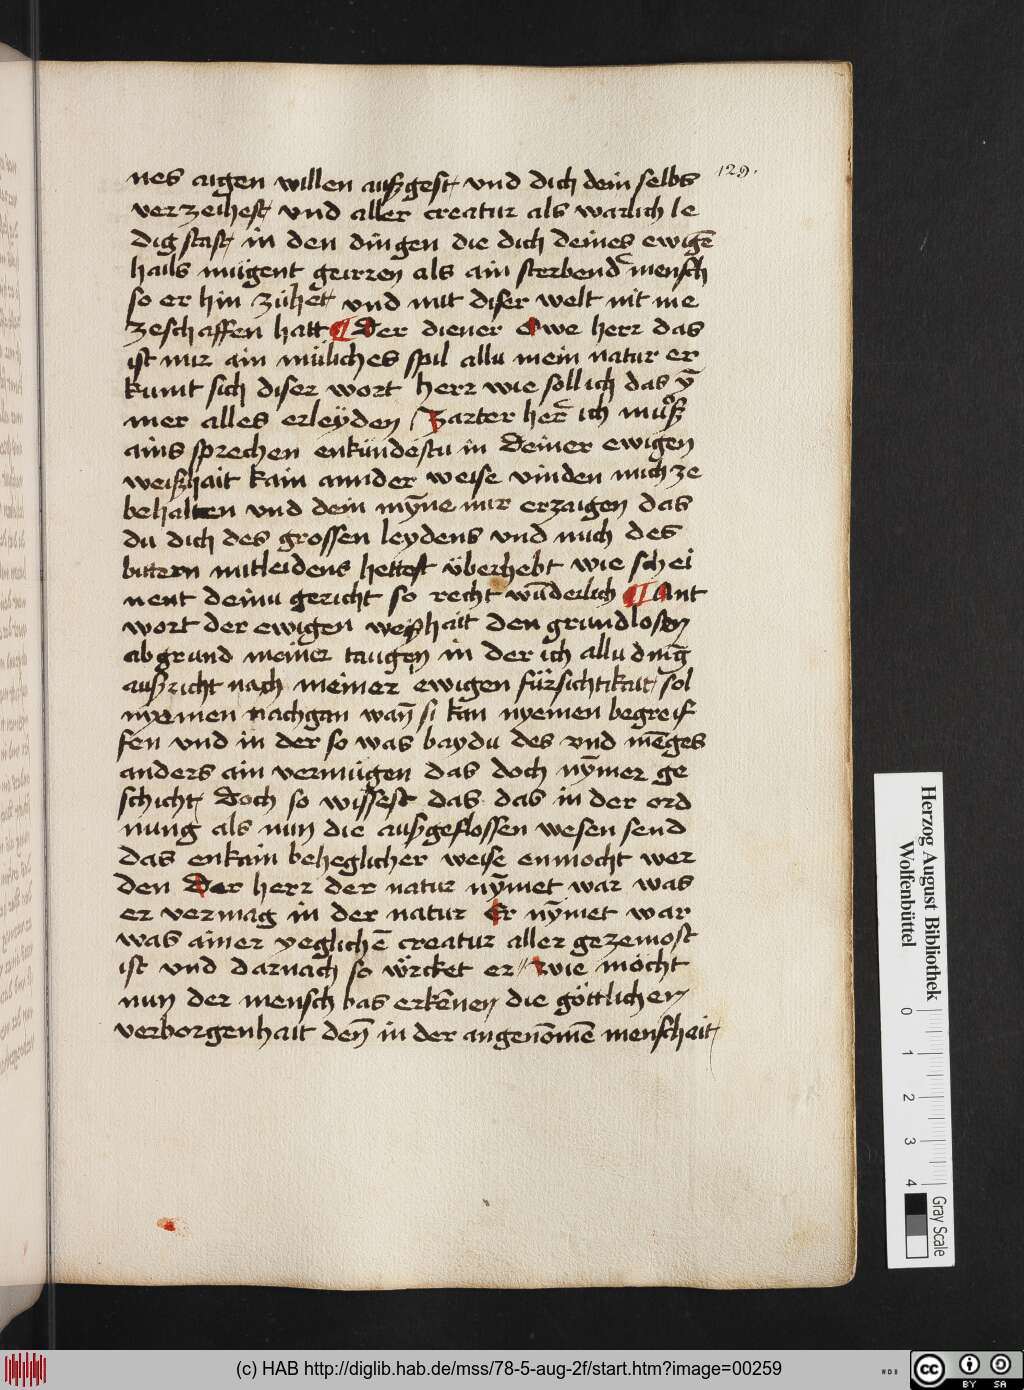 129.
nes aigen willen außgest und dich dein selbs
verzeihest und aller creatur als warlich le
dig stast in den dingen die dich deines ewigē
hails mügent geirren als ain sterbend mensch
so er hin zühet und mit diser welt nit me
zeschaffen hatt ¶ Der diener Ewe herr das
ist mir ain müliches spil allu mein natur er
kumt sich diser wort herr wie soll ich das ÿ
mer alles erleÿden / Zarter herr ich muͦß
ains sprechen enkündestu in deiner ewigen
weißhait kain annder weise vinden mich ze
behalten und dein mȳne mir erzaigen das
du dich des grossen leydens und mich des
bittern mitleidens hettest überhebt wie schei
nent deinu gericht so recht wūderlich ¶ Ant
wort der ewigen weißhait den grundlosen
abgrund meiner taugen in der ich allu ding
außricht nach meiner ewigen fürsichtikait sol
nyemen nachgan wañ si kan nyemen begreif
fen und in der so was baydu des und mēges
anders ain vermügen das doch nȳmer ge
schicht / Doch so wissest das das in der ord
nung als nun die außgeflossen wesen send
das enkain beheglicher weise enmocht wer
den Der herr der natur nȳmet war was
er vermag in der natur Er nȳmet war
was ainer yeglichē creatur aller gezemost
ist und darnach so würcket er // wie möcht
nun der mensch bas erkēnen die göttlichen
verborgenhait deñ in der angenōmē menschait
Herzog August Bibliothek
Wolfenbüttel
0 1 2 3 4
Gray Scale
(c) HAB http://diglib.hab.de/mss/78-5-aug-2f/start.htm?image=00259
WDB
cc BY SA